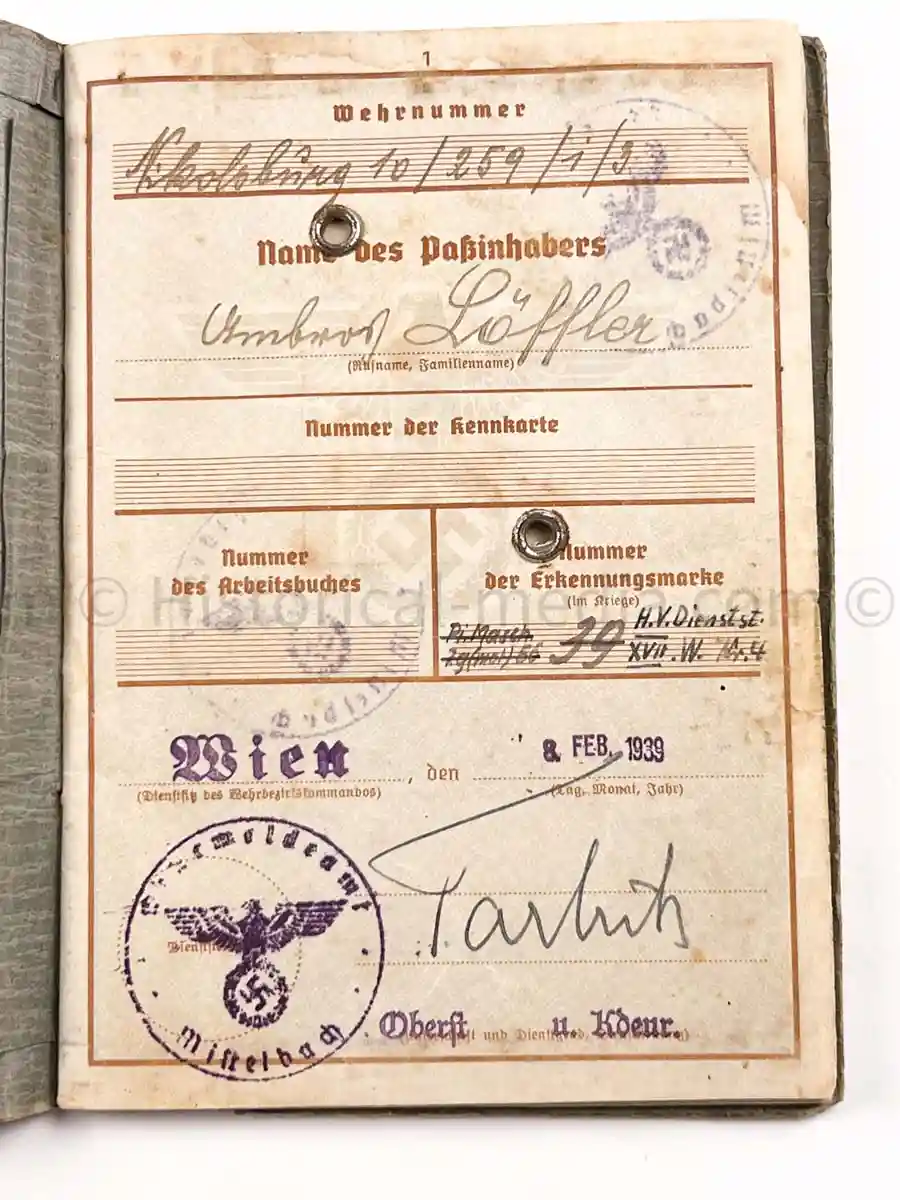 1
Wehrnummer
Nikolsburg 10/259/1/3
Name des Paßinhabers
Ambros Löffler
(Rufname, Familienname)
Nummer der Kennkarte
Nummer
des Arbeitsbuches
Nummer
der Erkennungsmarke
(Im Kriege)
© Historical-media.com ©
Pi. Masch. 39 H.V. Dienstst.
Zg(mot) 66 XVII. W. Nr. 4
Wien, den 8. FEB. 1939
(Dienstsitz des Wehrbezirkskommandos) (Tag, Monat, Jahr)
Wehrmeldeamt
Mistelbach
Oberst u. Kdeur.
Mistelbach
Mistelbach